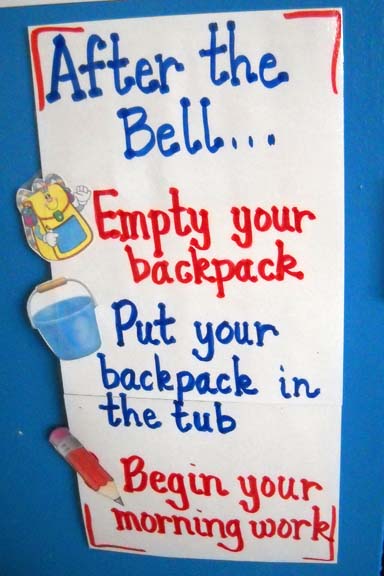 After the
Bell...
Empty your
backpack
Put your
backpack in
the tub
Begin your
morning work